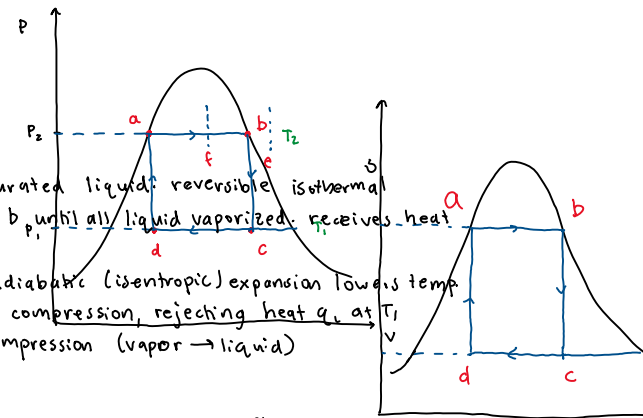 P
a
b
P₂
T₂
f
e
s
urated liquid: reversible isothermal
a
b
b until all liquid vaporized. receives heat
P₁
T₁
d
c
diabatic (isentropic) expansion lowers temp.
compression, rejecting heat q, at T₁
v
mpression (vapor → liquid)
d
c